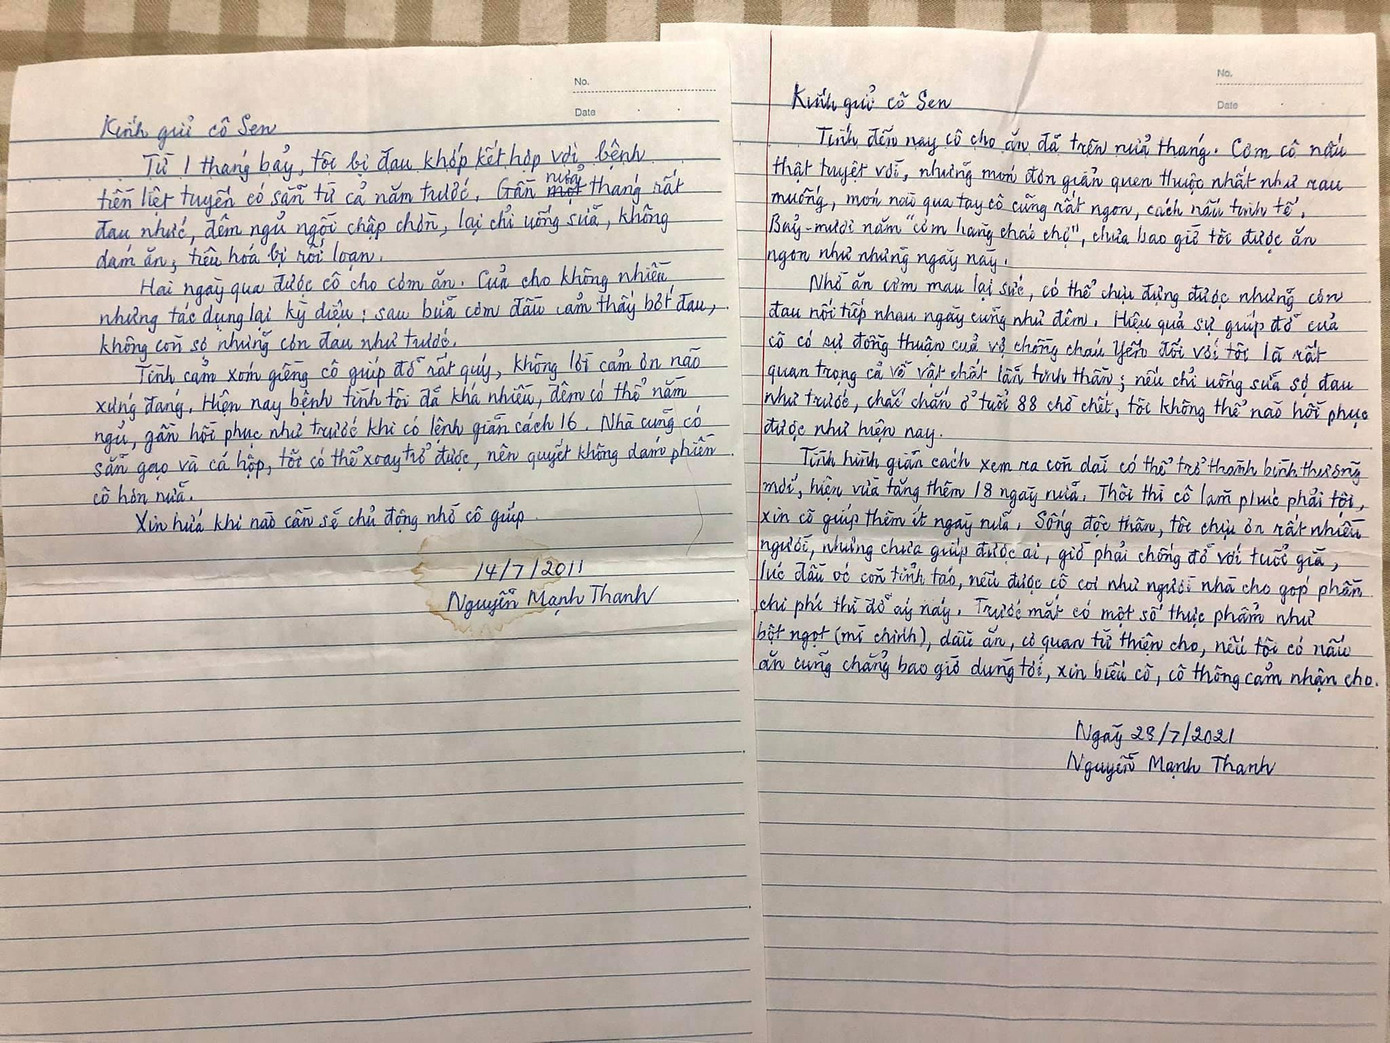 No.
Date
Kính gửi cô Sen
Từ 1 tháng bảy, tôi bị đau khớp kết hợp với bệnh
tiền liệt tuyến có sẵn từ cả năm trước. Gần nửa một tháng rất
đau nhức, đêm ngủ ngồi chập chờn, lại chỉ uống sữa, không
dám ăn, tiêu hóa bị rối loạn.
Hai ngày qua được cô cho cơm ăn. Của cho không nhiều
nhưng tác dụng lại kỳ diệu: sau bữa cơm đầu cảm thấy bớt đau,
không còn sợ những cơn đau như trước.
Tình cảm xóm giềng cô giúp đỡ rất quý, không lời cảm ơn nào
xứng đáng. Hiện nay bệnh tình tôi đã khá nhiều, đêm có thể nằm
ngủ, gần hồi phục như trước khi có lệnh giãn cách 16. Nhà cũng có
sẵn gạo và cá hộp, tôi có thể xoay trở được, nên quyết không dám phiền
cô hơn nữa.
Xin hứa khi nào cần sẽ chủ động nhờ cô giúp.
14/7/2011
Nguyễn Mạnh Thanh
No.
Date
Kính gửi cô Sen
Tính đến nay cô cho ăn đã trên nửa tháng. Cơm cô nấu
thật tuyệt vời, những món đơn giản quen thuộc nhất như rau
muống, món nào qua tay cô cũng rất ngon, cách nấu tinh tế.
Bảy-mươi năm "cơm hàng cháo chợ", chưa bao giờ tôi được ăn
ngon như những ngày này.
Nhờ ăn cơm mau lại sức, có thể chịu đựng được những cơn
đau nối tiếp nhau ngày cũng như đêm. Hiệu quả sự giúp đỡ của
cô có sự đồng thuận của vợ chồng cháu Yến đối với tôi là rất
quan trọng cả về vật chất lẫn tinh thần; nếu chỉ uống sữa sợ đau
như trước, chắc chắn ở tuổi 88 chờ chết, tôi không thể nào hồi phục
được như hiện nay.
Tình hình giãn cách xem ra còn dài có thể trở thành bình thường
mới, hiện vừa tăng thêm 18 ngày nữa. Thôi thì cô làm phúc phải tội,
xin cô giúp thêm ít ngày nữa. Sống độc thân, tôi chịu ơn rất nhiều
người, nhưng chưa giúp được ai, giờ phải chống đỡ với tuổi già,
lúc đầu óc còn tỉnh táo, nếu được cô coi như người nhà cho góp phần
chi phí thì đỡ áy náy. Trước mắt có một số thực phẩm như
bột ngọt (mì chính), dầu ăn, cơ quan từ thiện cho, nếu tôi có nấu
ăn cũng chẳng bao giờ dùng tới, xin biếu cô, cô thông cảm nhận cho.
Ngày 29/7/2021
Nguyễn Mạnh Thanh